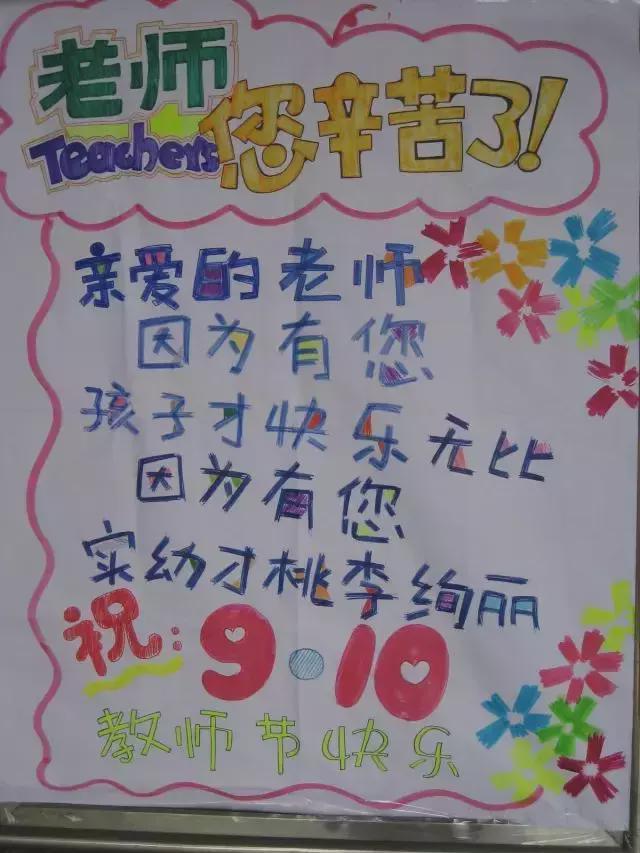 老师
Teachers
您辛苦了!
亲爱的老师
因为有您
孩子才快乐无比
因为有您
实幼才桃李绚丽
祝:9·10
教师节快乐